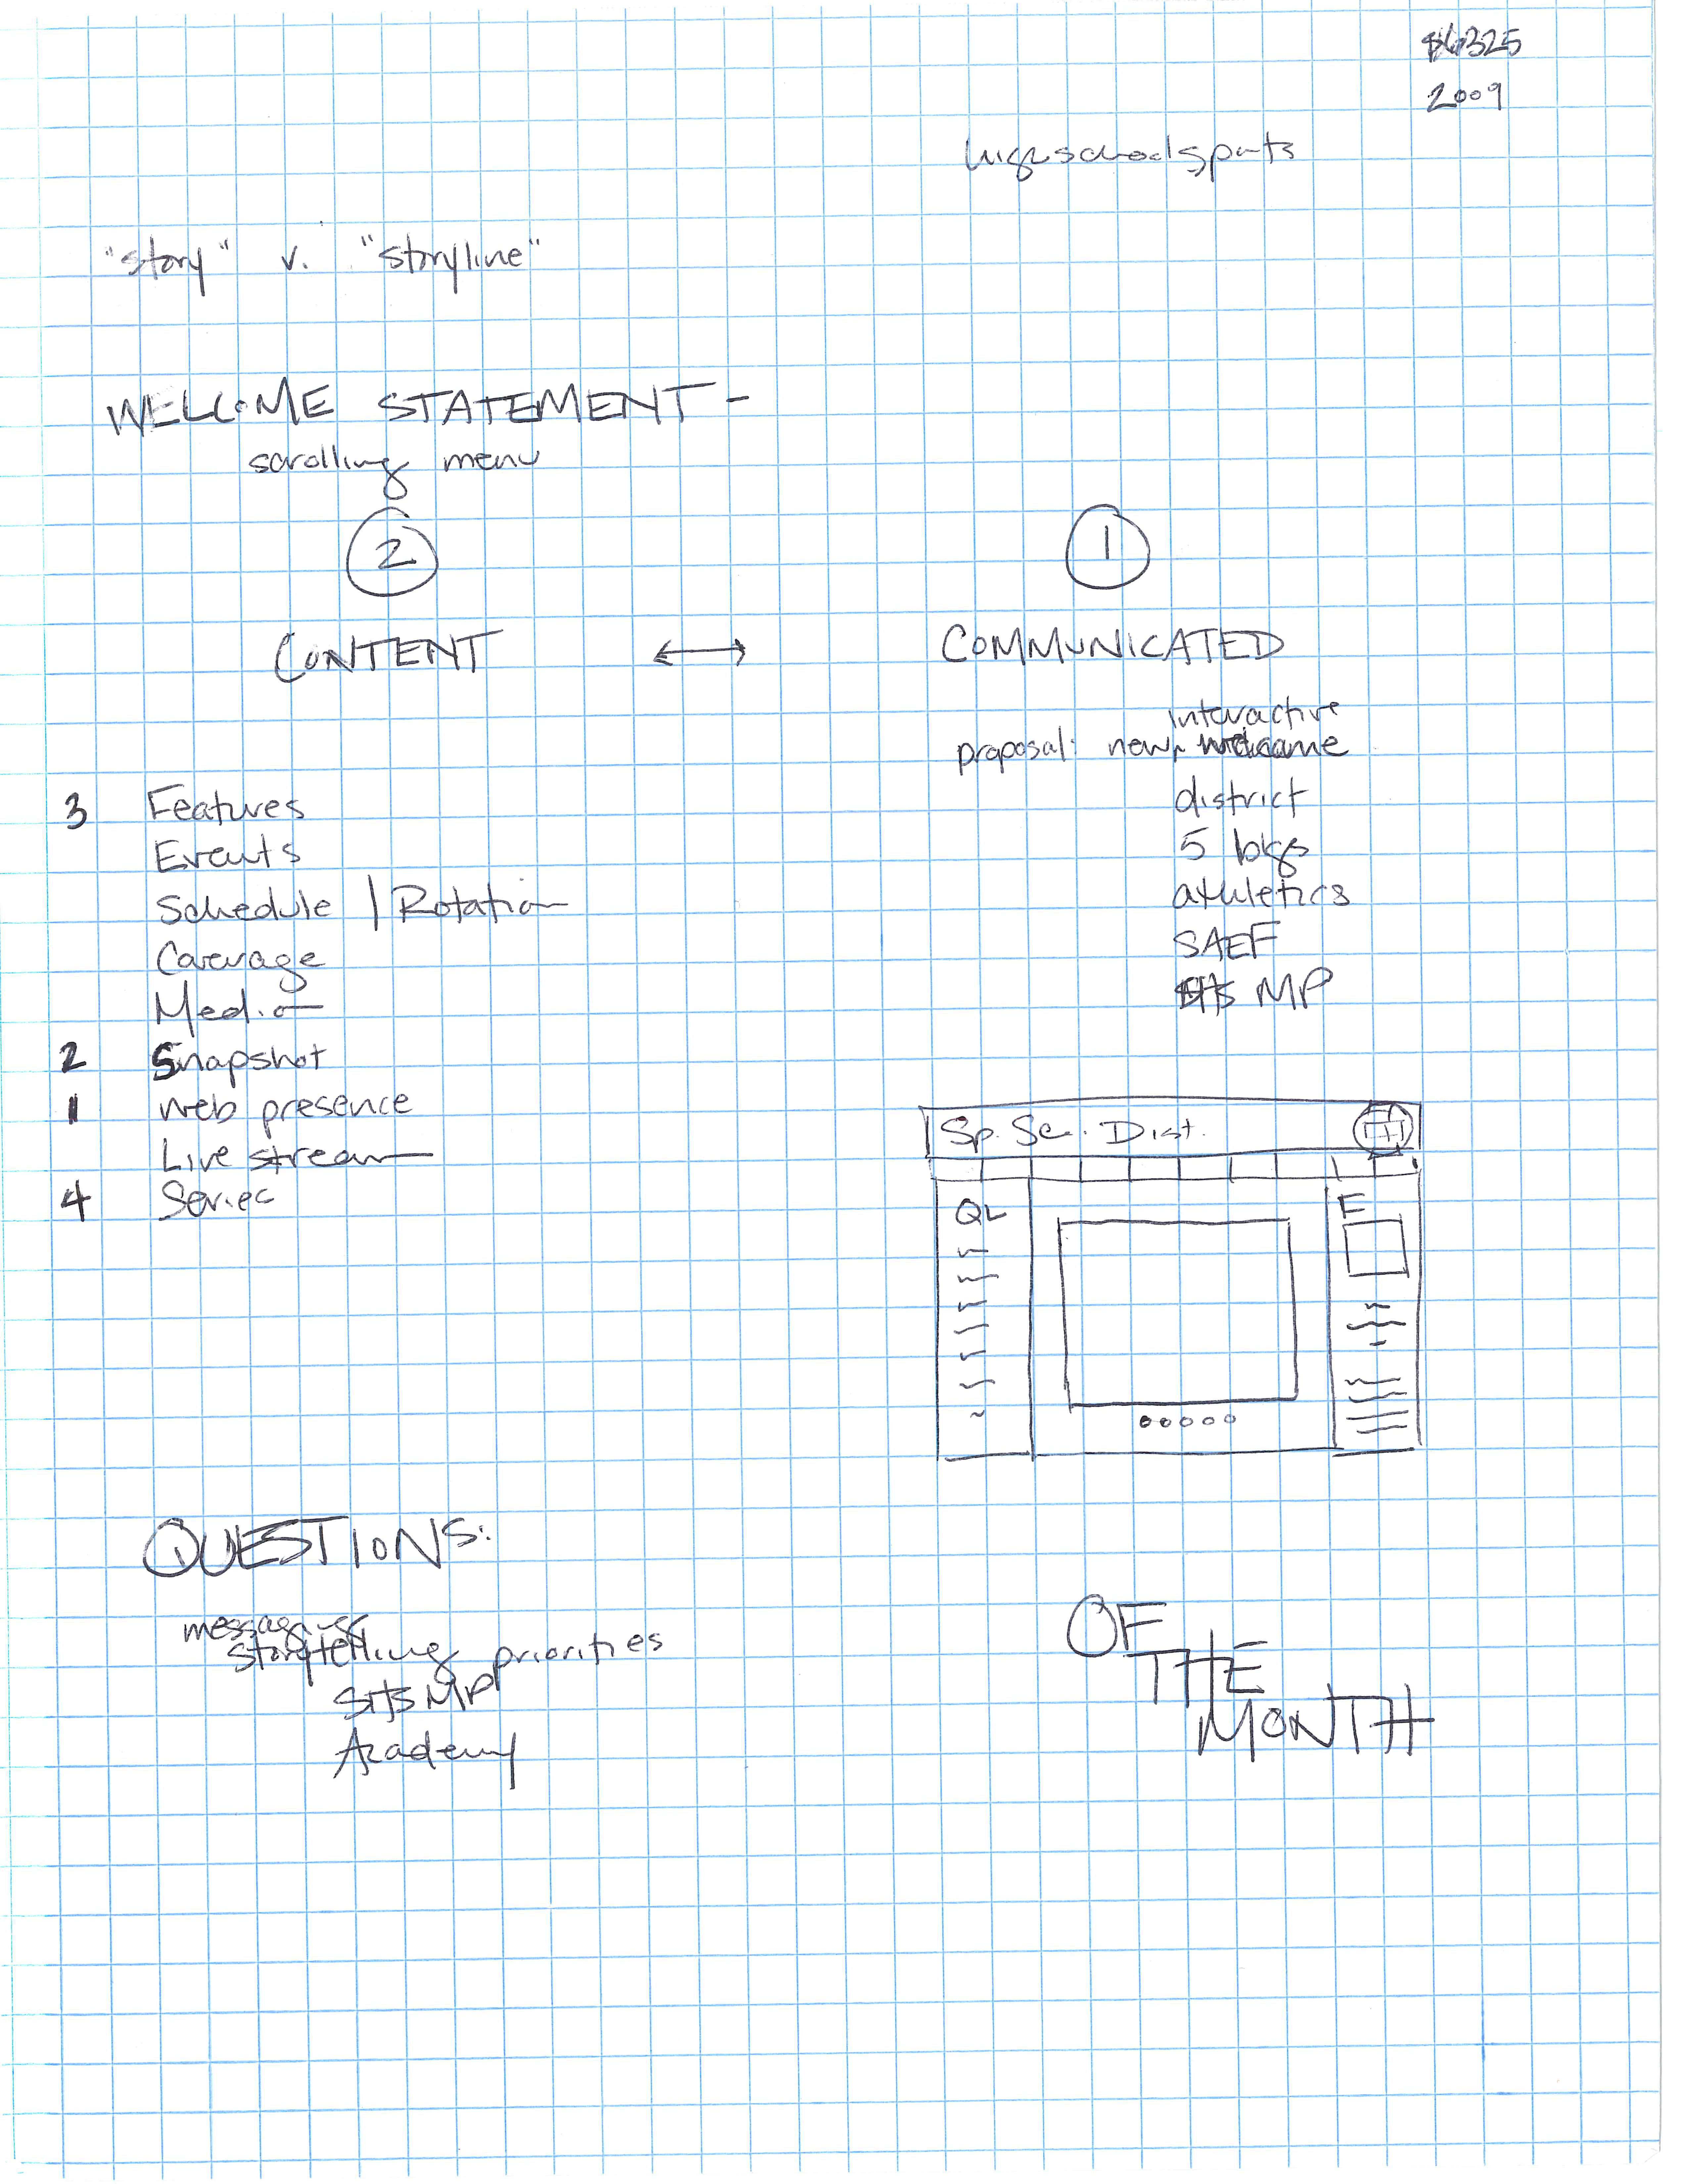 2009
highschoolsports
"story" v. "storyline"
WELCOME STATEMENT -
scrolling menu
2
1
CONTENT ↔ COMMUNICATED
interactive
proposal: new, welcome
district
5 bkgs
athletics
SAEF
SHS MP
3 Features
Events
Schedule | Rotation
Coverage
Media
2 Snapshot
1 web presence
Live stream
4 Series
Sp. Sc. Dist.
QL
F
QUESTIONS:
messaging
storytelling priorities
SHS MP
Academy
OF
THE
MONTH